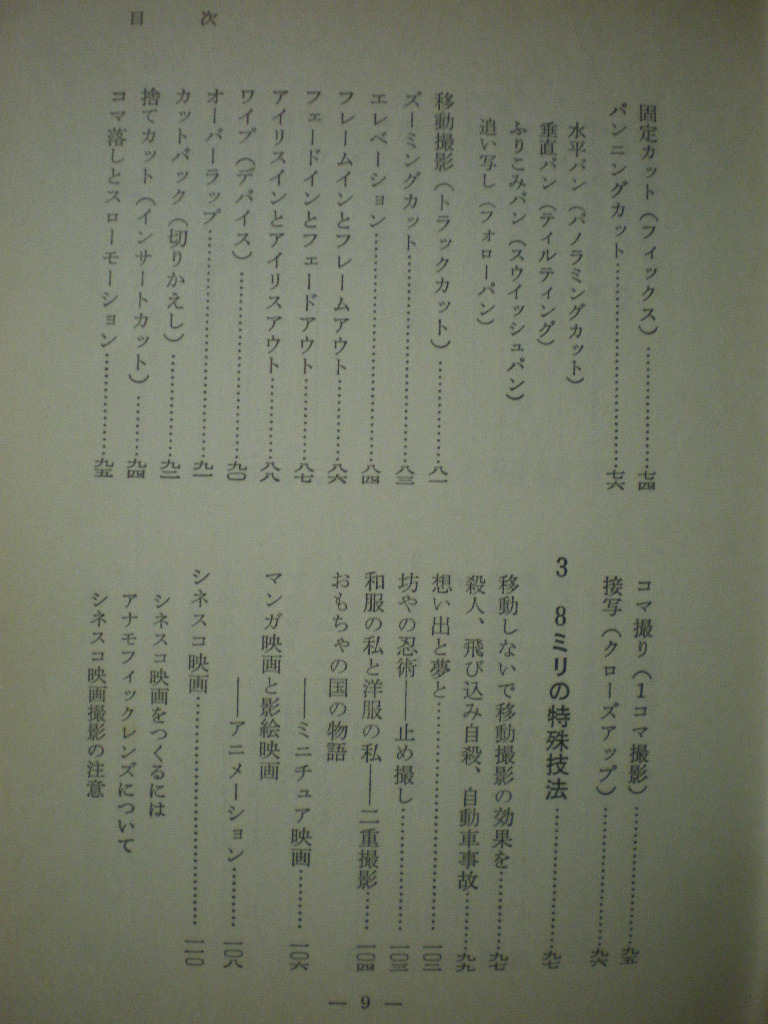 目次
固定カット（フィックス）……………七四
パンニングカット……………七六
水平パン（パノラミングカット）
垂直パン（ティルティング）
ふりこみパン（スウイッシュパン）
追い写し（フォローパン）
移動撮影（トラックカット）……………八一
ズーミングカット……………八三
エレベーション……………八四
フレームインとフレームアウト……………八六
フェードインとフェードアウト……………八七
アイリスインとアイリスアウト……………八八
ワイプ（デバイス）……………九〇
オーバーラップ……………九一
カットバック（切りかえし）……………九二
捨てカット（インサートカット）……………九四
コマ落しとスローモーション……………九五
コマ撮り（1コマ撮影）……………九五
接写（クローズアップ）……………九六
3 8ミリの特殊技法……………九七
移動しないで移動撮影の効果を……………九七
殺人、飛び込み自殺、自動車事故……………九九
想い出と夢と……………一〇二
坊やの忍術――止め撮し……………一〇三
和服の私と洋服の私――二重撮影……………一〇四
おもちゃの国の物語
――ミニチュア映画……………一〇六
マンガ映画と影絵映画
――アニメーション……………一〇八
シネスコ映画……………一一〇
シネスコ映画をつくるには
アナモフィックレンズについて
シネスコ映画撮影の注意
— 9 —